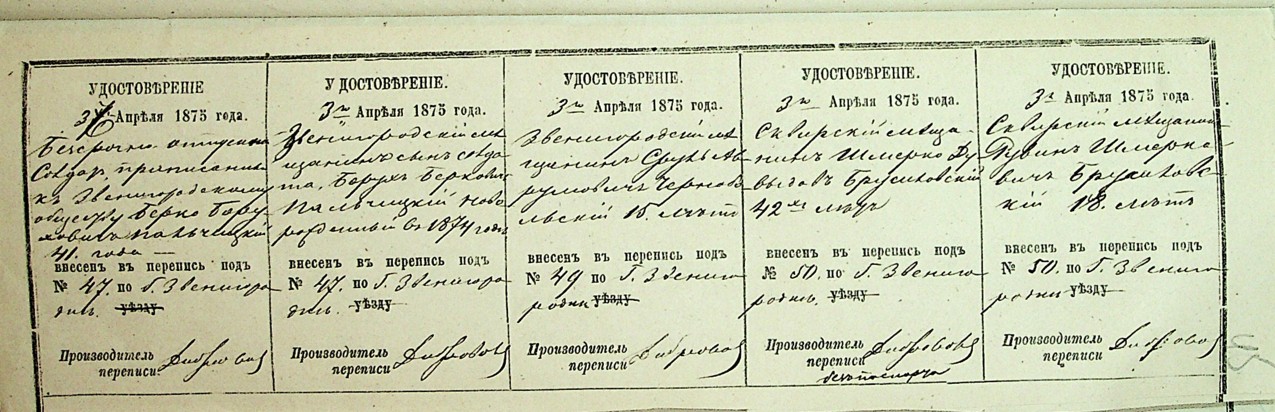 УДОСТОВѢРЕНІЕ
3го Апрѣля 1875 года.
Безсрочно отпускн
Солдат, приписанный
къ Звенигородскому
обществу Берко Бору-
ховичъ Пальчицкій
41. года —
внесенъ въ перепись подъ
№ 47. по Г. Звенигоро
дкѣ. уѣзду
Производитель
переписи
УДОСТОВѢРЕНІЕ.
3го Апрѣля 1875 года.
Звенигородскій мѣ-
щанинъ сынъ солда-
та, Борухъ Берковичъ
Пальчицкій ново
рожденный въ 1874 годѣ
внесенъ въ перепись подъ
№ 47. по Г. Звенигоро
дкѣ. уѣзду
Производитель
переписи
УДОСТОВѢРЕНІЕ.
3го Апрѣля 1875 года.
Звенигородскій мѣ
щанинъ Сруль Ав
румовичъ Чернобы
льскій 15. лѣтъ
внесенъ въ перепись подъ
№ 49 по Г. Звениго
родки уѣзду
Производитель
переписи
УДОСТОВѢРЕНІЕ.
3го Апрѣля 1875 года.
Сквирскій мѣща-
нинъ Шмерко Ду
выдовъ Брусиловскій
42хъ лѣтъ
внесенъ въ перепись подъ
№ 50. по Г. Звениго
родкѣ. уѣзду
Производитель
переписи
безъ паспорта
УДОСТОВѢРЕНІЕ.
3го Апрѣля 1875 года.
Сквирскій мѣщанинъ
Рувинъ Шмерко-
вичъ Брусиловс-
кій 18. лѣтъ
внесенъ въ перепись подъ
№ 50. по Г. Звениго
родки уѣзду
Производитель
переписи